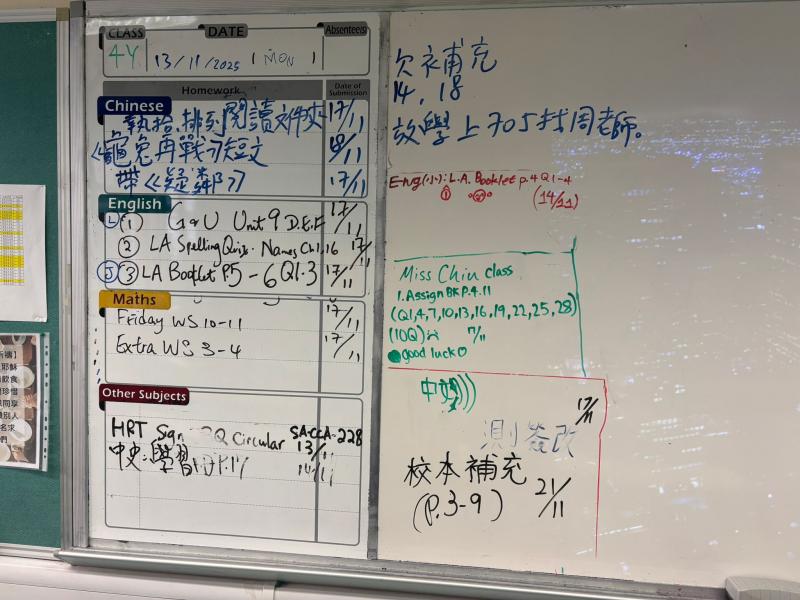 CLASS DATE Absentee(s)
4Y 13/11/2025 (MON)
Homework Date of Submission
Chinese
執拾、排列閱讀文件夾 17/11
龜兔再戰》短文 18/11
帶《疑鄰》 17/11
English
① G&U Unit 9 D.E.F 17/11
② LA Spelling Quiz. Names Ch1.16 17/11
③ LA Booklet P.5-6 Q1-3 17/11
Maths
Friday WS 10-11 17/11
Extra WS 3-4 17/11
Other Subjects
HRT Sign Circular SA-CCA-228 13/11
中史:學習 P.17 14/11
欠衣補充
14, 18
放學上705找周老師。
Eng(小): L.A. Booklet p.4 Q1-4
(14/11)
Miss Chiu class
1. Assign BK P.4.11
(Q1,4,7,10,13,16,19,22,25,28)
(10Q) 17/11
good luck
中
17/11
測簽改
校本補充 21/11
(P.3-9)